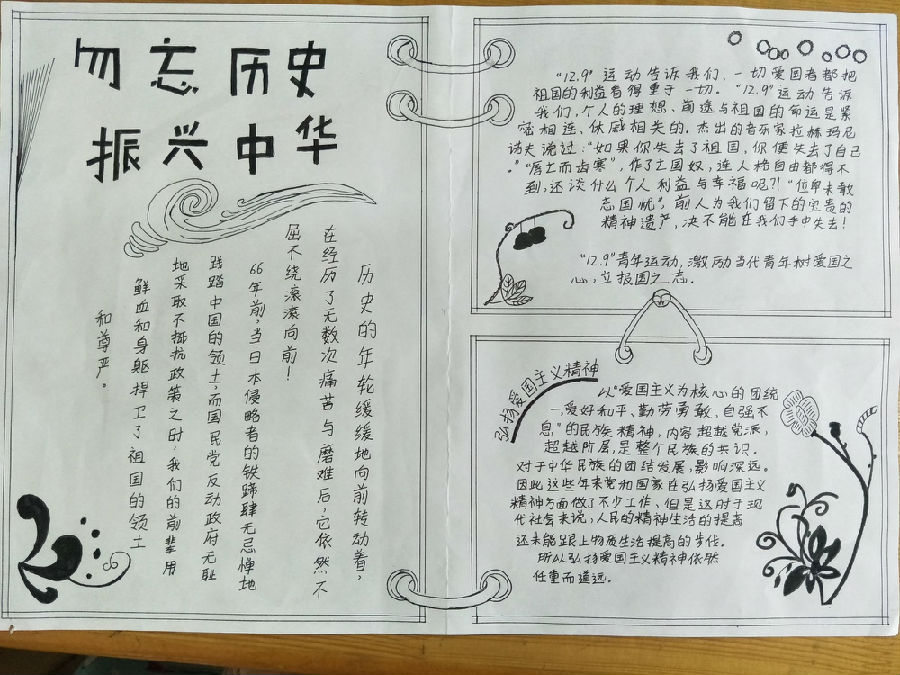 勿忘历史
振兴中华
历史的年轮缓缓地向前转动着,
在经历了无数次痛苦与磨难后,它依然不
屈不绕滚滚向前!
66年前,当日本侵略者的铁蹄肆无忌惮地
践踏中国的领土,而国民党反动政府无耻
地采取不抵抗政策之时,我们的前辈用
鲜血和身躯捍卫了祖国的领土
和尊严。
"12.9"运动告诉我们,一切爱国者都把
祖国的利益看得重于一切。"12.9"运动告诉
我们,个人的理想、前途与祖国的命运是紧
密相连、休戚相关的,杰出的音乐家拉赫玛尼
诺夫说过:"如果你失去了祖国,你便失去了自己
。"唇亡而齿寒",作了亡国奴,连人格自由都得不
到,还谈什么个人利益与幸福呢?!"位卑未敢
忘国忧",前人为我们留下的宝贵的
精神遗产,决不能在我们手中失去!
"12.9"青年运动,激励当代青年树爱国之
心,立报国之志.
弘扬爱国主义精神
以"爱国主义为核心的团结
一,爱好和平、勤劳勇敢、自强不
息"的民族精神,内容超越党派,
超越阶层,是整个民族的共识.
对于中华民族的团结发展,影响深远。
因此这些年来党和国家在弘扬爱国主义
精神方面做了不少工作、但是这对于现
代社会来说,人民的精神生活的提高
还未能跟上物质生活提高的步伐.
所以弘扬爱国主义精神依然
任重而道远.